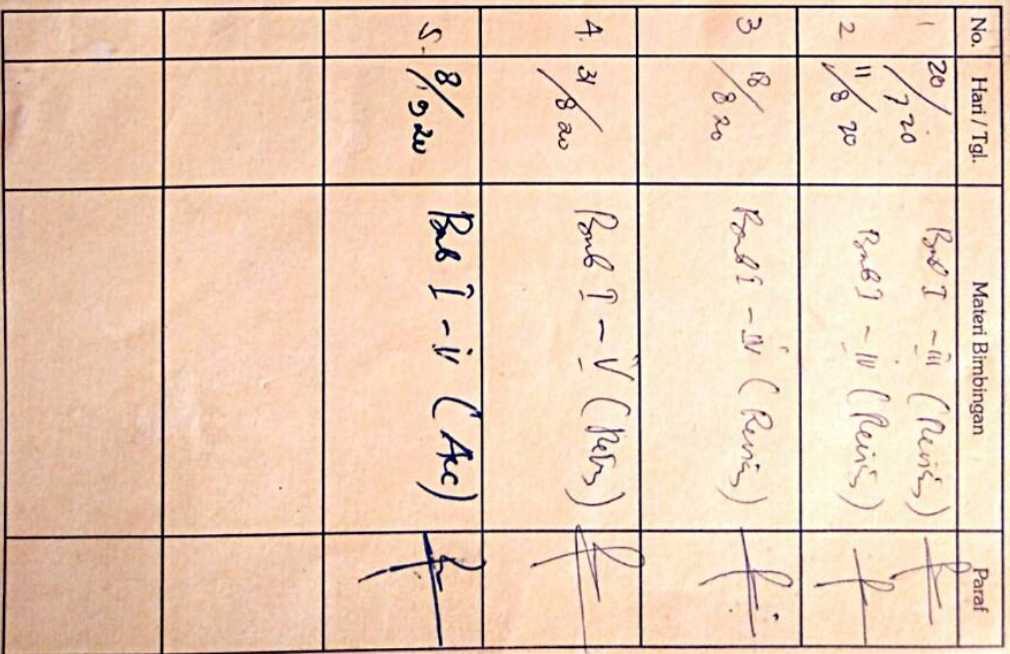 No. Hari / Tgl. Materi Bimbingan Paraf
1 20/7 20 Bab I - III (Revisi)
2 11/8 20 Bab I - IV (Revisi)
3 18/8 20 Bab I - IV (Revisi)
4. 31/8 20 Bab I - V (Revisi)
5. 8/9 20 Bab I - V (Acc)